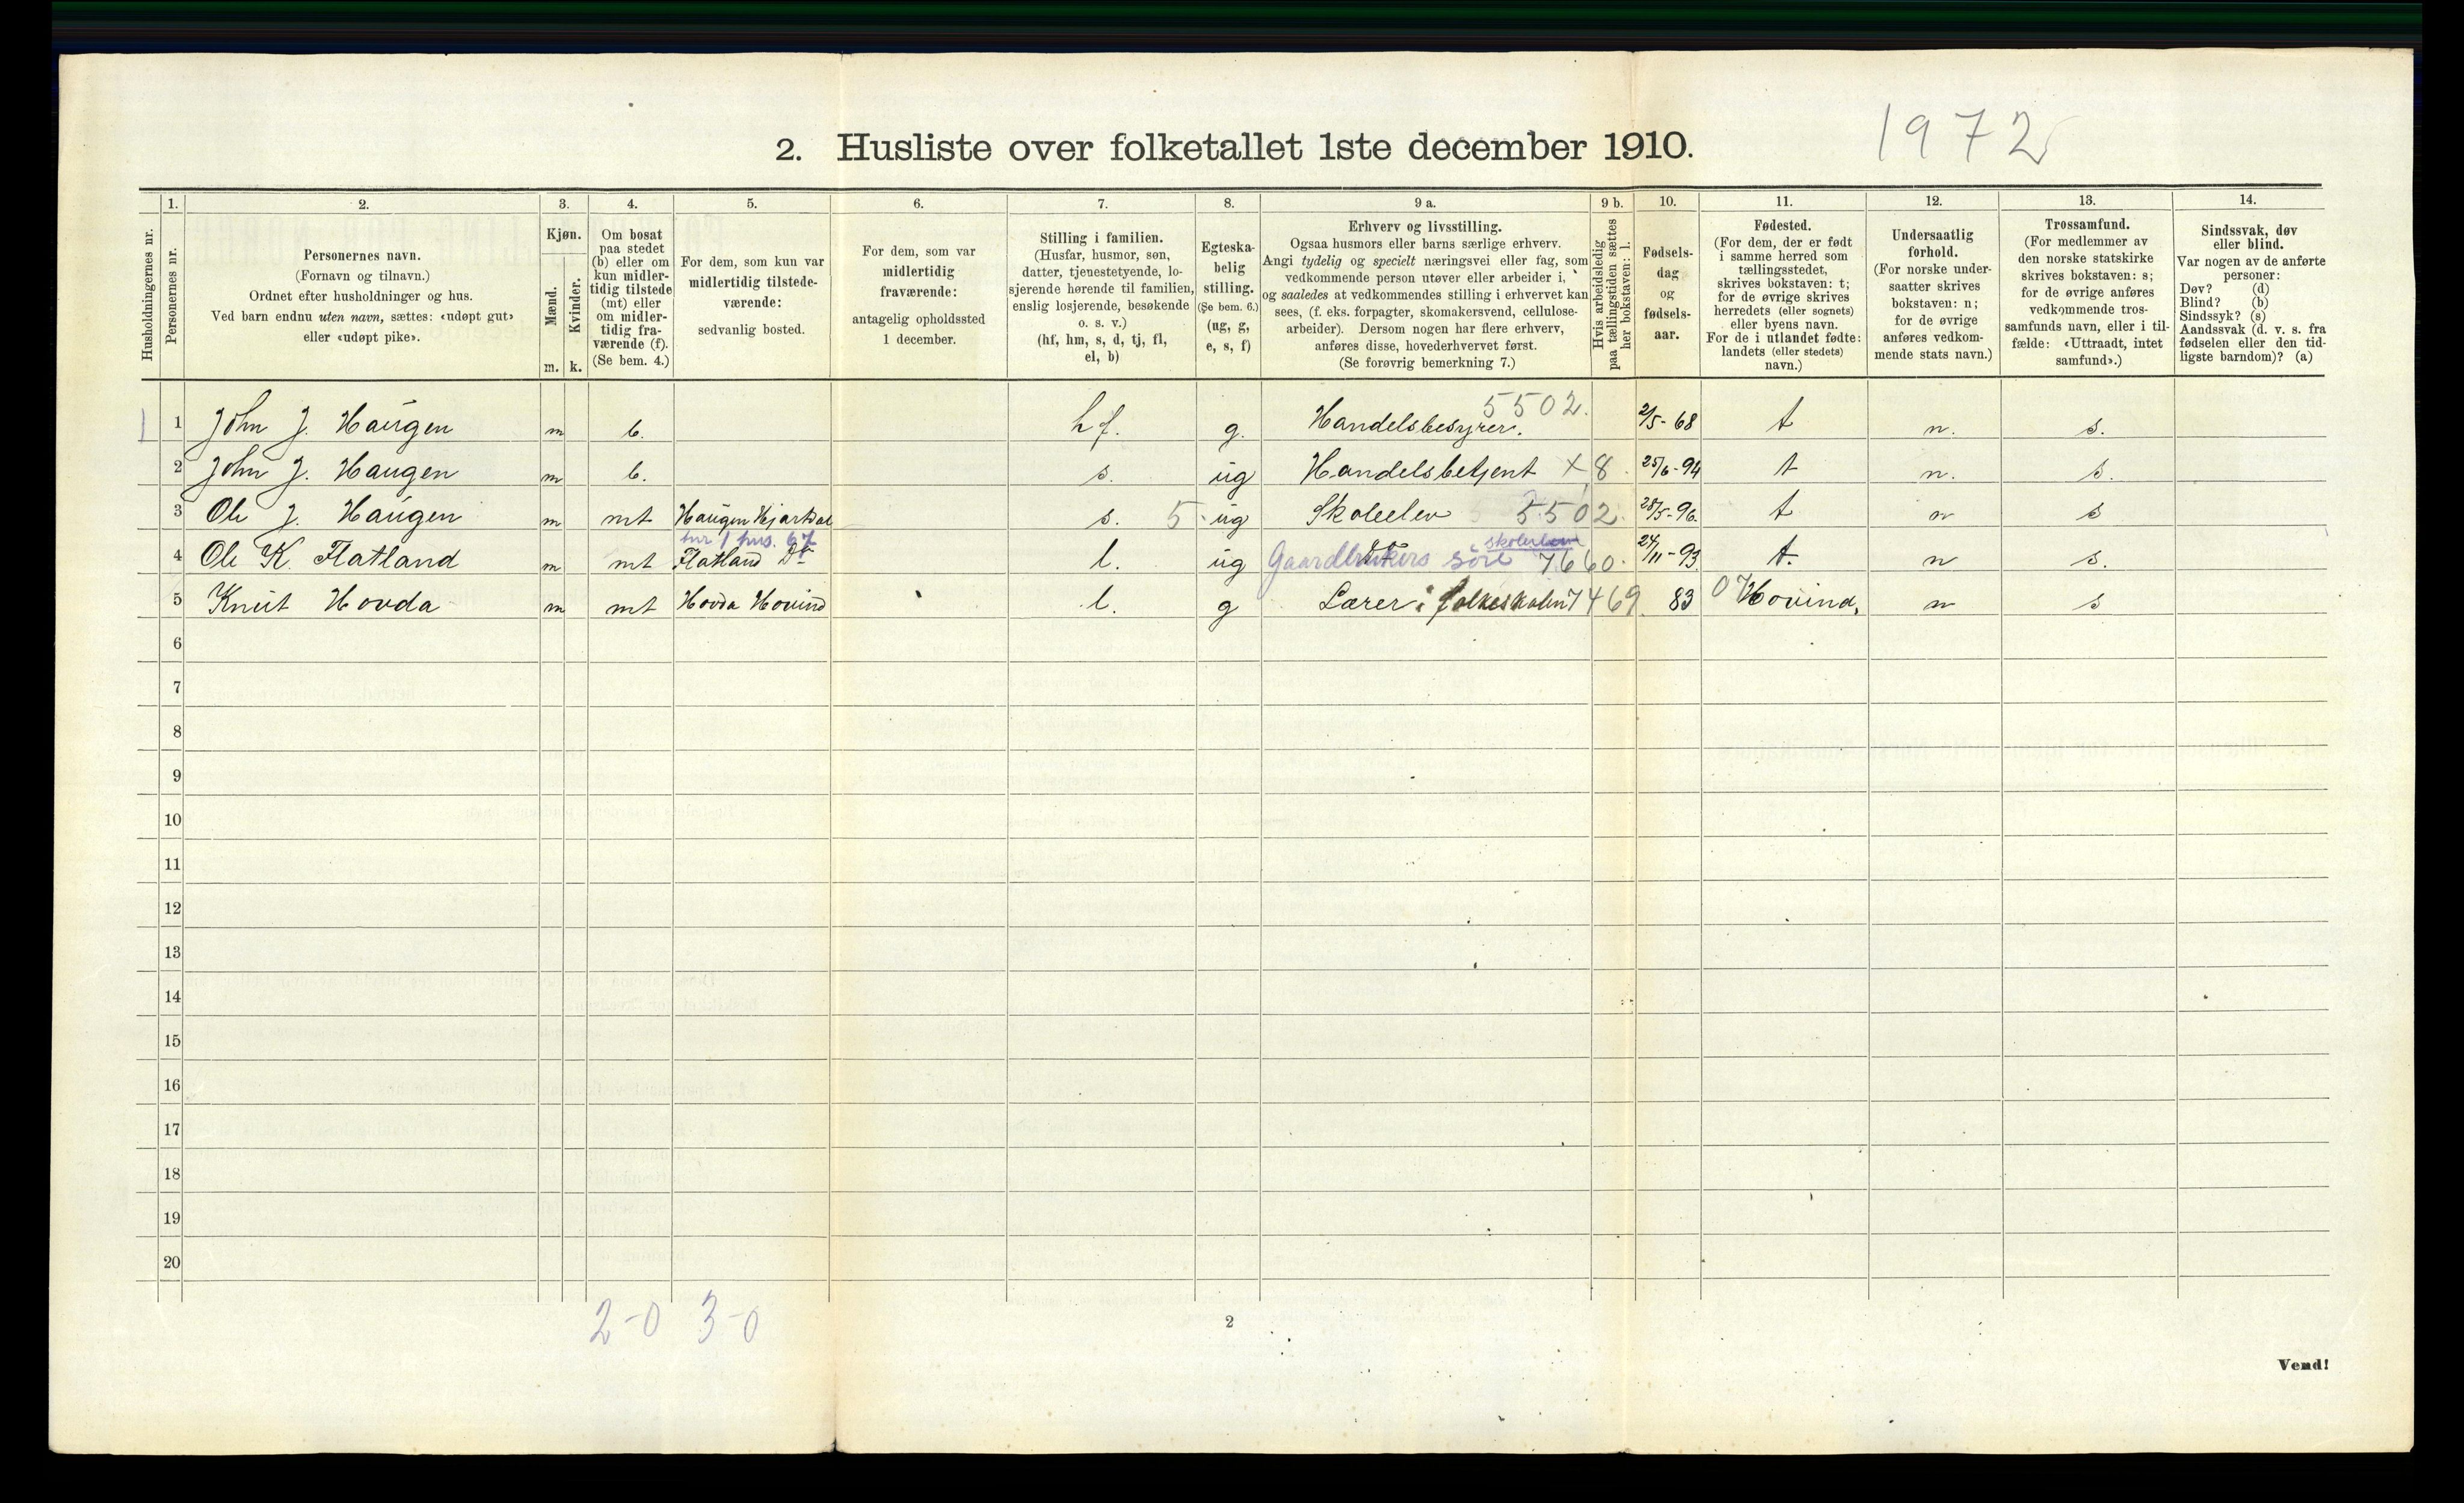 1972
2. Husliste over folketallet 1ste december 1910.
Husholdningernes nr.
1.
Personernes nr.
2.
Personernes navn.
(Fornavn og tilnavn.)
Ordnet efter husholdninger og hus.
Ved barn endnu uten navn, sættes: «udøpt gut»
eller «udøpt pike».
3.
Kjøn.
Mænd.
Kvinder.
m. k.
4.
Om bosat
paa stedet
(b) eller om
kun midler-
tidig tilstede
(mt) eller
om midler-
tidig fra-
værende (f).
(Se bem. 4.)
5.
For dem, som kun var
midlertidig tilstede-
værende:
sedvanlig bosted.
6.
For dem, som var
midlertidig
fraværende:
antagelig opholdssted
1 december.
7.
Stilling i familien.
(Husfar, husmor, søn,
datter, tjenestetyende, lo-
sjerende hørende til familien,
enslig losjerende, besøkende
o. s. v.)
(hf, hm, s, d, tj, fl,
el, b)
8.
Egteska-
belig
stilling.
(Se bem. 6.)
(ug, g,
e, s, f)
9 a.
Erhverv og livsstilling.
Ogsaa husmors eller barns særlige erhverv.
Angi tydelig og specielt næringsvei eller fag, som
vedkommende person utøver eller arbeider i,
og saaledes at vedkommendes stilling i erhvervet kan
sees, (f. eks. forpagter, skomakersvend, cellulose-
arbeider). Dersom nogen har flere erhverv,
anføres disse, hovederhvervet først.
(Se forøvrig bemerkning 7.)
9 b.
Hvis arbeidsledig
paa tællingstiden sættes
her bokstaven: l.
10.
Fødsels-
dag
og
fødsels-
aar.
11.
Fødested.
(For dem, der er født
i samme herred som
tællingsstedet,
skrives bokstaven: t;
for de øvrige skrives
herredets (eller sognets)
eller byens navn.
For de i utlandet fødte:
landets (eller stedets)
navn.)
12.
Undersaatlig
forhold.
(For norske under-
saatter skrives
bokstaven: n;
for de øvrige
anføres vedkom-
mende stats navn.)
13.
Trossamfund.
(For medlemmer av
den norske statskirke
skrives bokstaven: s;
for de øvrige anføres
vedkommende tros-
samfunds navn, eller i til-
fælde: «Uttraadt, intet
samfund».)
14.
Sindssvak, døv
eller blind.
Var nogen av de anførte
personer:
Døv? (d)
Blind? (b)
Sindssyk? (s)
Aandssvak (d. v. s. fra
fødselen eller den tid-
ligste barndom)? (a)
5502.
1 1 John J. Haugen m b. hf. g. Handelsbesyrer. 2/5-68 t n. s.
2 John J. Haugen m b. s. ug Handelsbetjent X8. 25/6-94 t n. s.
3 Ole J. Haugen m mt Haugen Hjartdal s. 5 ug Skoleelev 5502. 28/5-96. t n s
hus. 67
4 Ole K. Flatland m mt Flatland Do l. ug Gaardbrukers 7660. 24/11-93 t. n s.
5 Knut Hovda m mt Hovda Hovind l. g Lærer i folkeskolen 7469. 83 0 Hovind, n s
6
7
8
9
10
11
12
13
14
15
16
17
18
19
20
2-0 3-0
2
Vend!